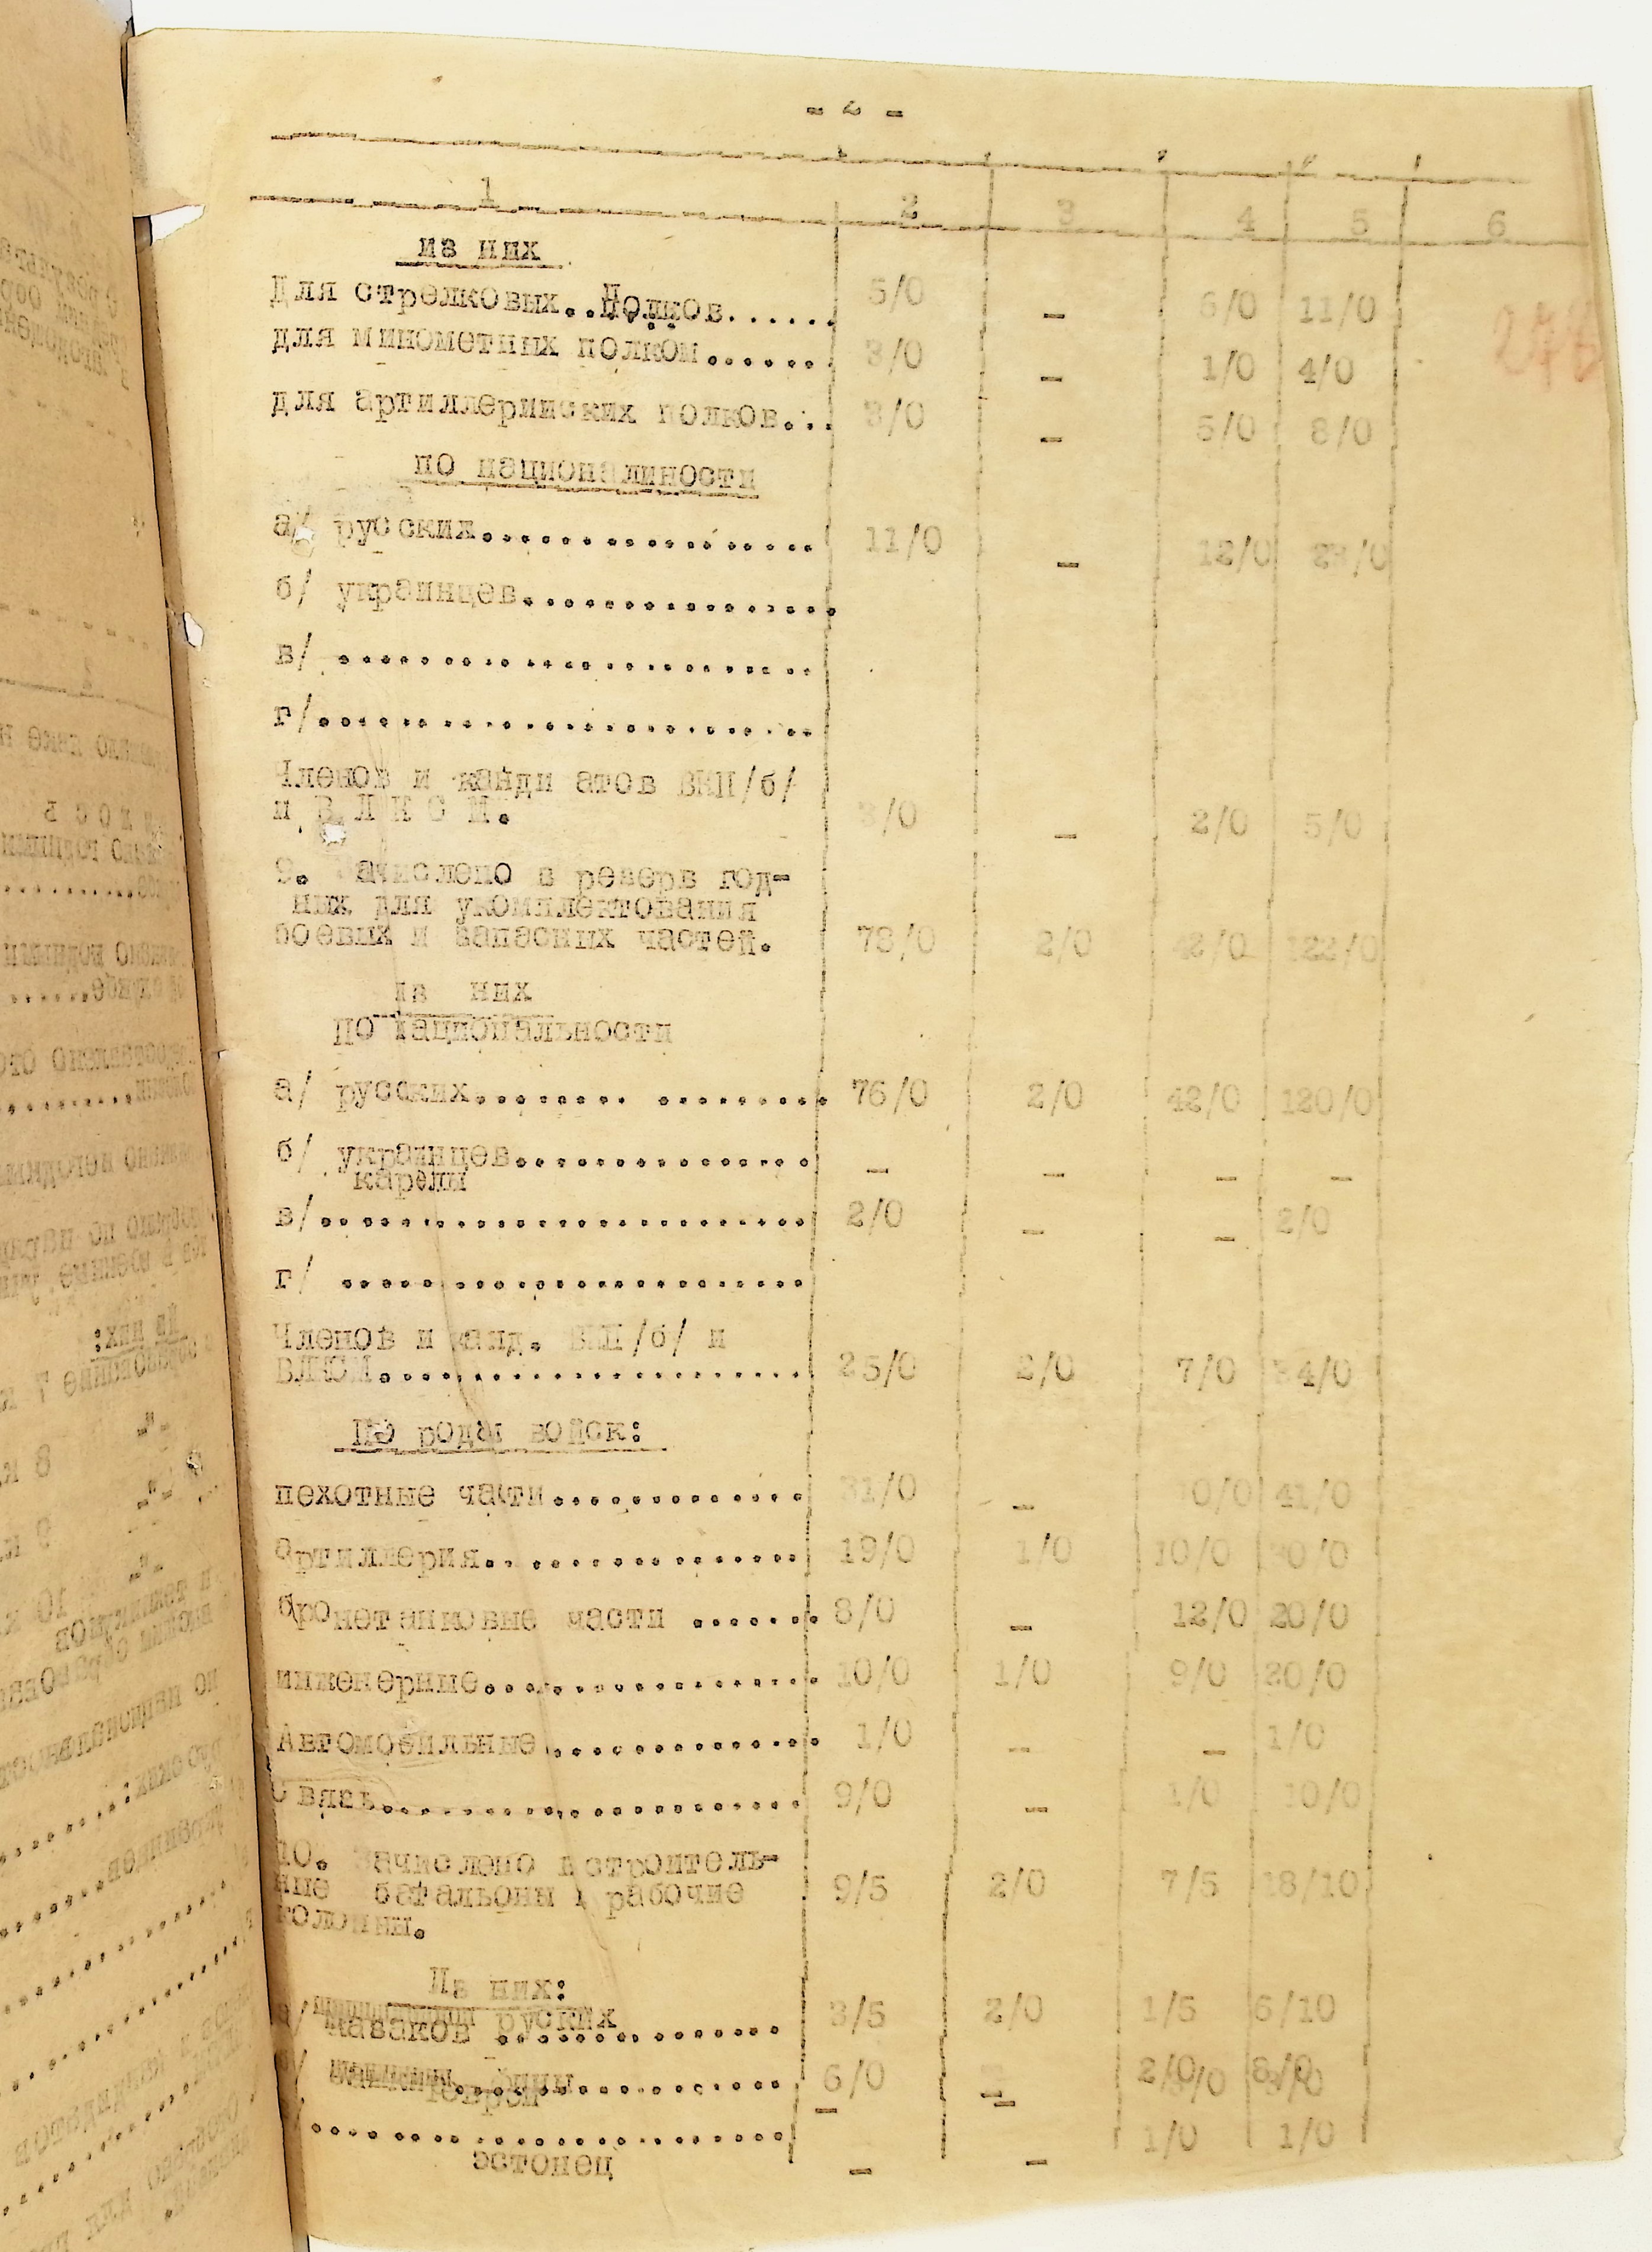 - 2 -
1 2 3 4 5 6
из них
Для стрелковых..полков...... 5/0 - 6/0 11/0
для минометных полков...... 3/0 - 1/0 4/0
для артиллерийских полков... 3/0 - 5/0 8/0
по национальности
а/ русских.................. 11/0 - 12/0
б/ украинцев.................
в/ ........................
г/........................
Членов и канди атов ВКП/б/
и В Л К С М. 3/0 - 2/0 5/0
9. Зачислено в резерв год-
ных для укомплектования
боевых и запасных частей. 78/0 2/0 42/0 122/0
Из них
по национальности
а/ русских........ ......... 76/0 2/0 42/0 120/0
б/ украинцев................ - - - -
карелы
в/.......................... 2/0 - - 2/0
г/ ........................
Членов и канд. ВКП/б/ и
ВЛКСМ....................... 25/0 2/0 7/0 34/0
По роды войск:
пехотные части.............. 31/0 - 10/0 41/0
артиллерия.. ............... 19/0 1/0 10/0 30/0
бронетанковые части ....... 8/0 - 12/0 20/0
инженерные.................. 10/0 1/0 9/0 20/0
Автомобильные............... 1/0 - - 1/0
Связь....................... 9/0 - 1/0 10/0
10. Зачислено в строитель-
ные батальоны и рабочие 9/5 2/0 7/5 18/10
колонны.
Из них:
русских
а/ казаков ............... 3/5 2/0 1/5 6/10
финны
6/0 - 2/0 8/0
евреи
-
......................... 1/0 1/0
эстонец - -